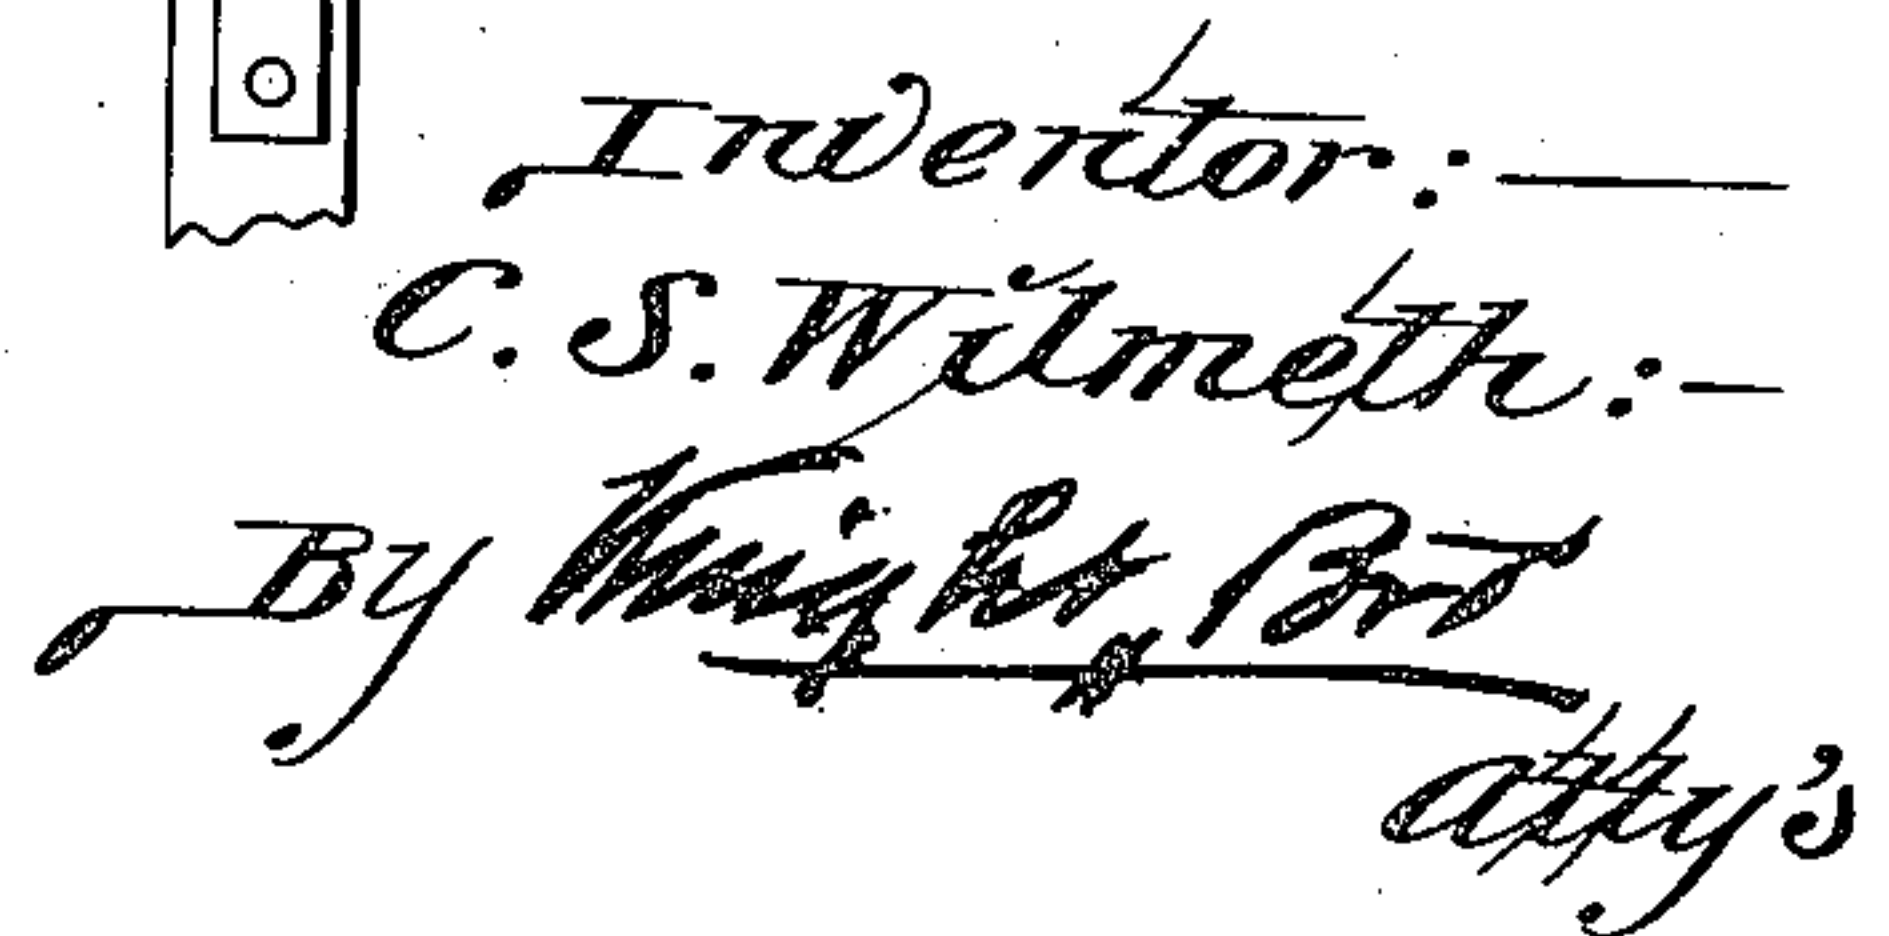 Inventor:—
C. S. Wilmeth:—
By Knight Bro
atty's